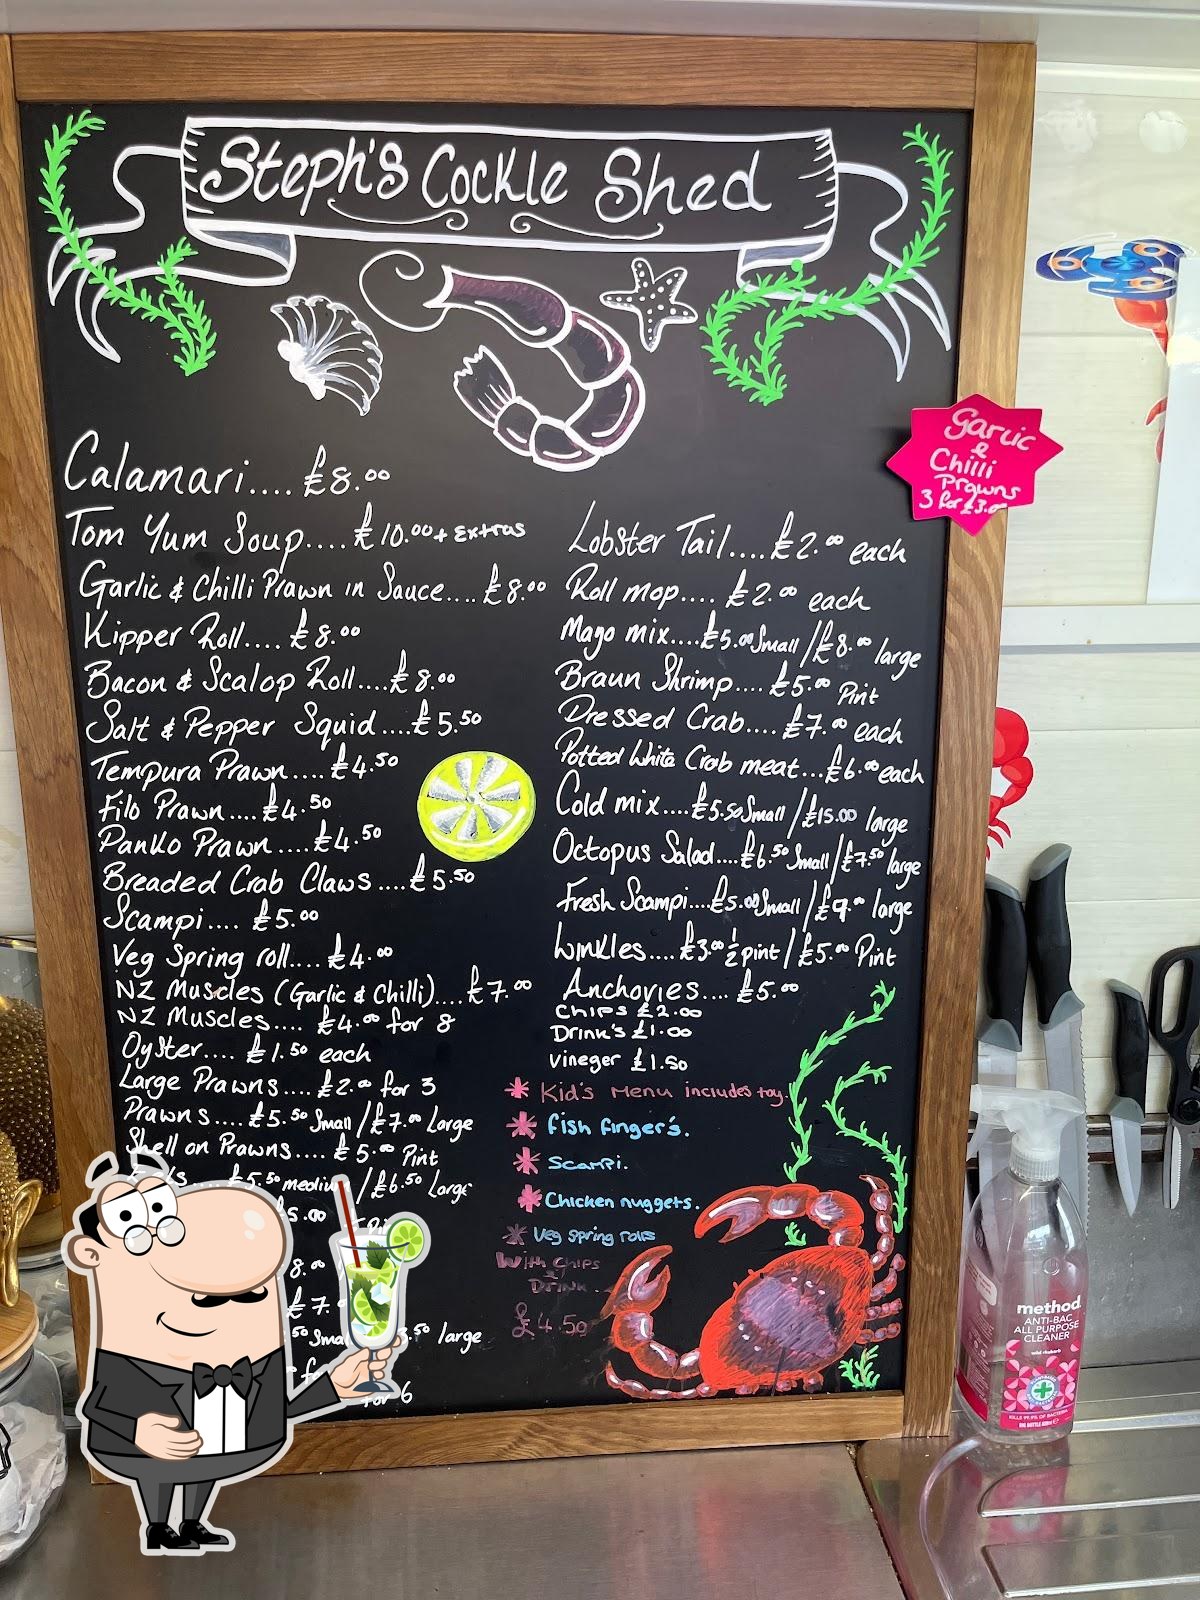 Steph's Cockle Shed
Garlic
&
Chilli
Prawns
3 for £3.00
Calamari.... £8.00
Tom Yum Soup.... £10.00 + Extras
Garlic & Chilli Prawn in Sauce.... £8.00
Kipper Roll.... £8.00
Bacon & Scalop Roll.... £8.00
Salt & Pepper Squid.... £5.50
Tempura Prawn.... £4.50
Filo Prawn.... £4.50
Panko Prawn.... £4.50
Breaded Crab Claws.... £5.50
Scampi.... £5.00
Veg Spring roll.... £4.00
NZ Muscles (Garlic & Chilli).... £7.00
NZ Muscles.... £4.00 for 8
Oyster.... £1.50 each
Large Prawns.... £2.00 for 3
Prawns.... £5.50 Small / £7.00 Large
Shell on Prawns.... £5.00 Pint
£5.50 medium / £6.50 Large
5.00
8.00
£7.0
50 Small .50 large
for 6
Lobster Tail.... £2.00 each
Roll mop.... £2.00 each
Mayo mix.... £5.00 Small / £8.00 large
Braun Shrimp.... £5.00 Pint
Dressed Crab.... £7.00 each
Potted White Crab meat... £6.00 each
Cold mix.... £5.50 Small / £15.00 large
Octopus Salad.... £6.50 Small / £7.50 large
Fresh Scampi.... £5.00 Small / £9.00 large
Winkles.... £3.00 ½ pint / £5.00 Pint
Anchovies.... £5.00
Chips £2.00
Drink's £1.00
Vineger £1.50
* Kid's Menu includes toy.
* fish finger's.
* Scampi.
* Chicken nuggets.
* Veg spring rolls
With Chips
& Drink..
£4.50
method.
ANTI-BAC
ALL PURPOSE
CLEANER
wild rhubarb
KILLS 99.9% OF BACTERIA